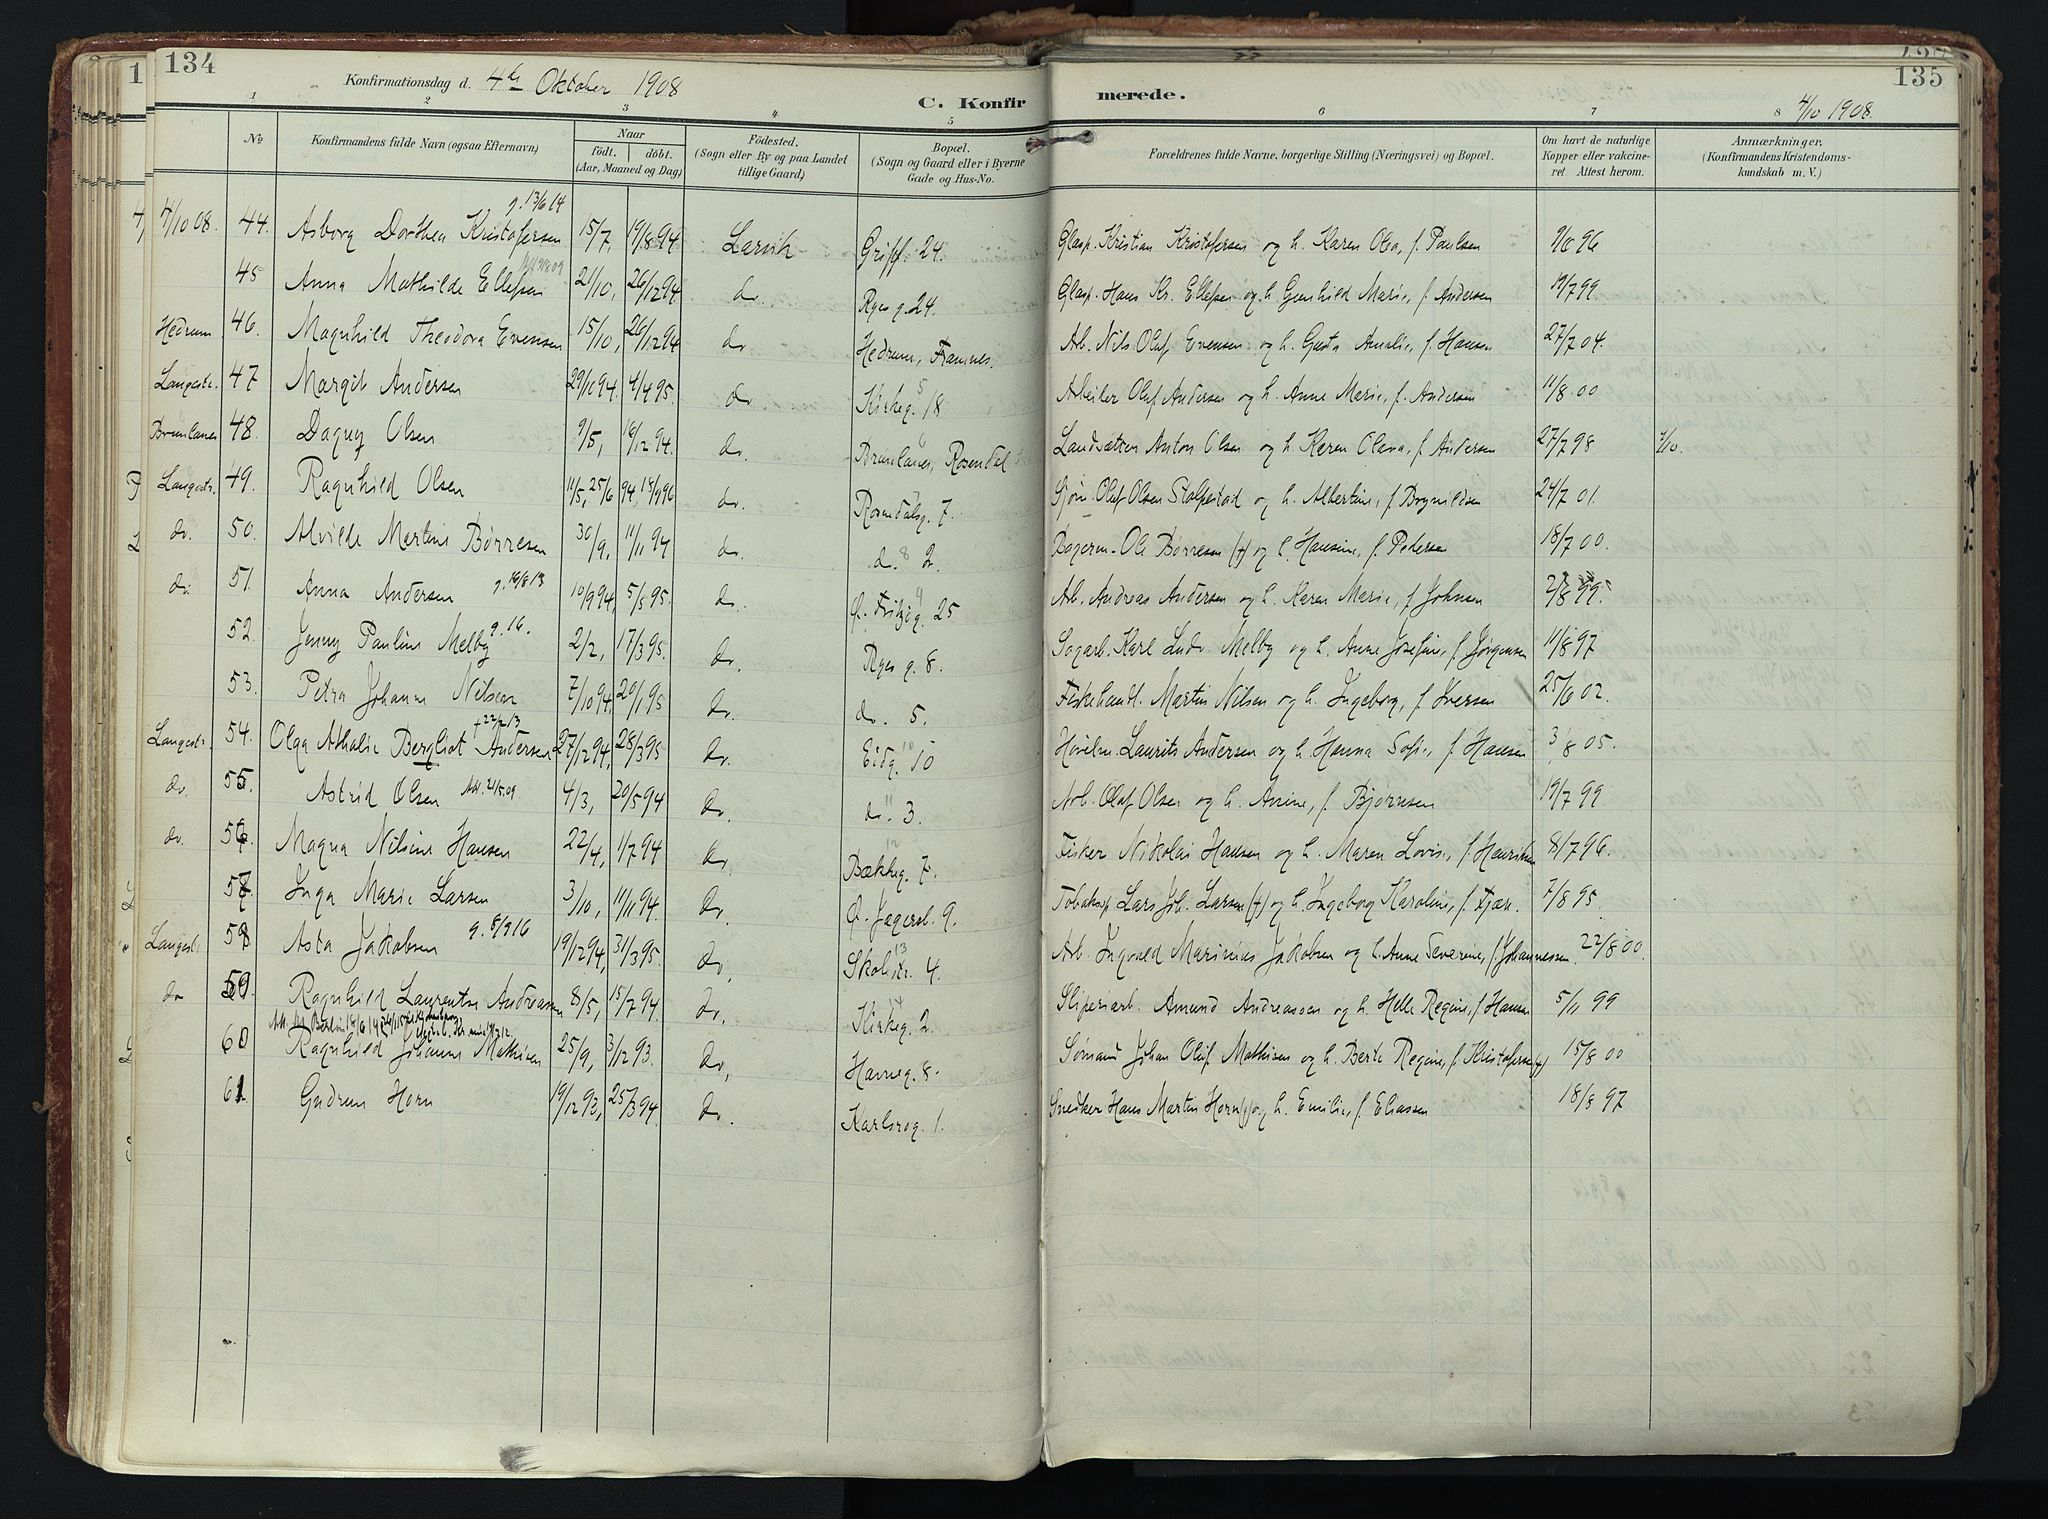 134
Konfirmationsdag d. 4de Oktober 1908
C. Konfirmerede.
135
4/10 1908.
1 2 3 4 5 6 7 8
No
Konfirmandens fulde Navn (ogsaa Efternavn)
Naar
födt. döbt.
(Aar, Maaned og Dag)
Födested.
(Sogn eller By og paa Landet tillige Gaard)
Bopæl.
(Sogn og Gaard eller i Byerne Gade og Hus-No.
Forældrenes fulde Navne, borgerlige Stilling (Næringsvei) og Bopæl.
Om havt de naturlige Kopper eller vakcineret. Attest herom.
Anmærkninger.
(Konfirmandens Kristendomskundskab m. V.)
g. 13/6 14
4/10 08. 44. Asborg Dorthea Kristofersen 15/7, 19/8 94. Larvik Griffs. 24. Glasp. Kristian Kristofersen og h. Karen Olva, f. Paulsen 9/6 96
45 Anna Mathilde Ellefsen 21/10, 26/12 94. do. Ryes g. 24. Glasp. Hans Kr. Ellefsen og h. Gunhild Marie, f. Andersen 19/7 99.
Hedrum 46. Magnhild Theodora Evensen 15/10, 26/12 94 do Hedrum, Framnes. Arb. Nils Oluf Evensen og h. Gusta Amalie, f. Hansen 27/7 04.
Langestr. 47 Margit Andersen 29/10 94. 4/4 95. do. Kirkeg. 18 Arbeider Oluf Andersen og h. Anne Marie, f. Andersen 11/8 00
Brunlanes 48. Dagny Olsen 9/5, 16/12 94. do. Brunlanes, Rosendal Anton Olsen og h. Karen Olava, f. Andersen 27/7 98 4/10.
Langestr. 49. Ragnhild Olsen 11/5, 25/6 94, 18/9 96 do. Rosendalsg. 7. Sjøm. Oluf Olsen Stolpestad og h. Albertine, f. Brynildsen 24/7 01.
do. 50. Alvilde Martine Børresen 30/9, 11/11 94 do. do. 2. Bagerm. Ole Børresen (†) og h. Hansine, f. Pedersen 18/7 00.
do. 51. Anna Andersen g. 16/8 13 10/9 94, 5/5 95. do. Ø. Fritzøg. 25 Arb. Andreas Andersen og h. Karen Marie, f. Johnsen 2/8 99.
52. Jenny Pauline Melby g. 16. 2/2, 17/3 95. do. Ryes g. 8. Sagarb. Karl Ludv. Melby og h. Anne Josefine, f. Jørgensen 11/8 97
53. Petra Johanne Nilsen 7/10 94, 20/1 95 do. do. 5. Fiskehandl. Martin Nilsen og h. Ingeborg, f. Iversen 25/6 02.
† 22/2 13
Langestr. 54. Olga Athalie Bergliot Andersen 27/12 94, 28/3 95 do. Eidg. 10 Høvelm. Laurits Andersen og h. Hanna Sofie, f. Hansen 3/8 05.
do. 55. Astrid Olsen Att. 21/5 09 4/3, 20/5 94 do. do. 3. Arb. Olaf Olsen og h. Anine, f. Bjørnsen 19/7 99
do. 56. Magna Nilsine Hansen 22/4, 1/7 94 do. Bækkeg. 7. Fisker Nikolai Hansen og h. Maren Lovise, f. Henriksen 8/7 96.
57. Inga Marie Larsen 3/10, 11/11 94. do. Ø. Jegersb. 9. Lars Joh. Larsen (†) og h. Ingeborg Karoline, f. Fjære. 7/8 95.
Langestr. 58 Asta Jakobsen g. 8/9 16 19/12 94, 31/3 95. do, Skolestr. 4. Arb. Ingvald Marinius Jakobsen og h. Anne Severine, f. Johannessen. 22/8 00.
do 59. Ragnhild Laurentse Andreassen 8/5, 15/7 94. do, Kirkeg. 2. Sliperiarb. Amund Andreassen og h. Helle Regine, f. Hansen 5/11 99
60 Ragnhild Johanne Mathisen 25/9, 3/12 93. do, Havneg. 8. Sømand Johan Oluf Mathisen og h. Berte Regine, f. Kristofersen (†) 15/8 00
61. Gudrun Horn 19/12 93, 25/3 94. do. Karlsrog. 1. Snedker Hans Martin Horn (†) og h. Emilie, f. Eliassen 18/8 97